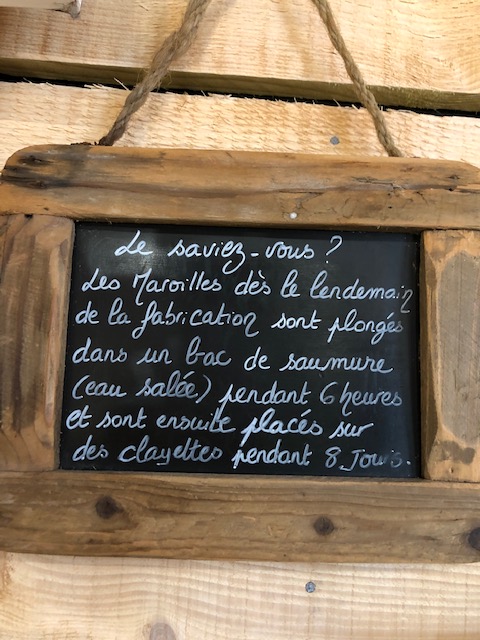 Le saviez-vous ?
Les Maroilles dès le lendemain
de la fabrication sont plongés
dans un bac de saumure
(eau salée) pendant 6 heures
et sont ensuite placés sur
des clayettes pendant 8 Jours.